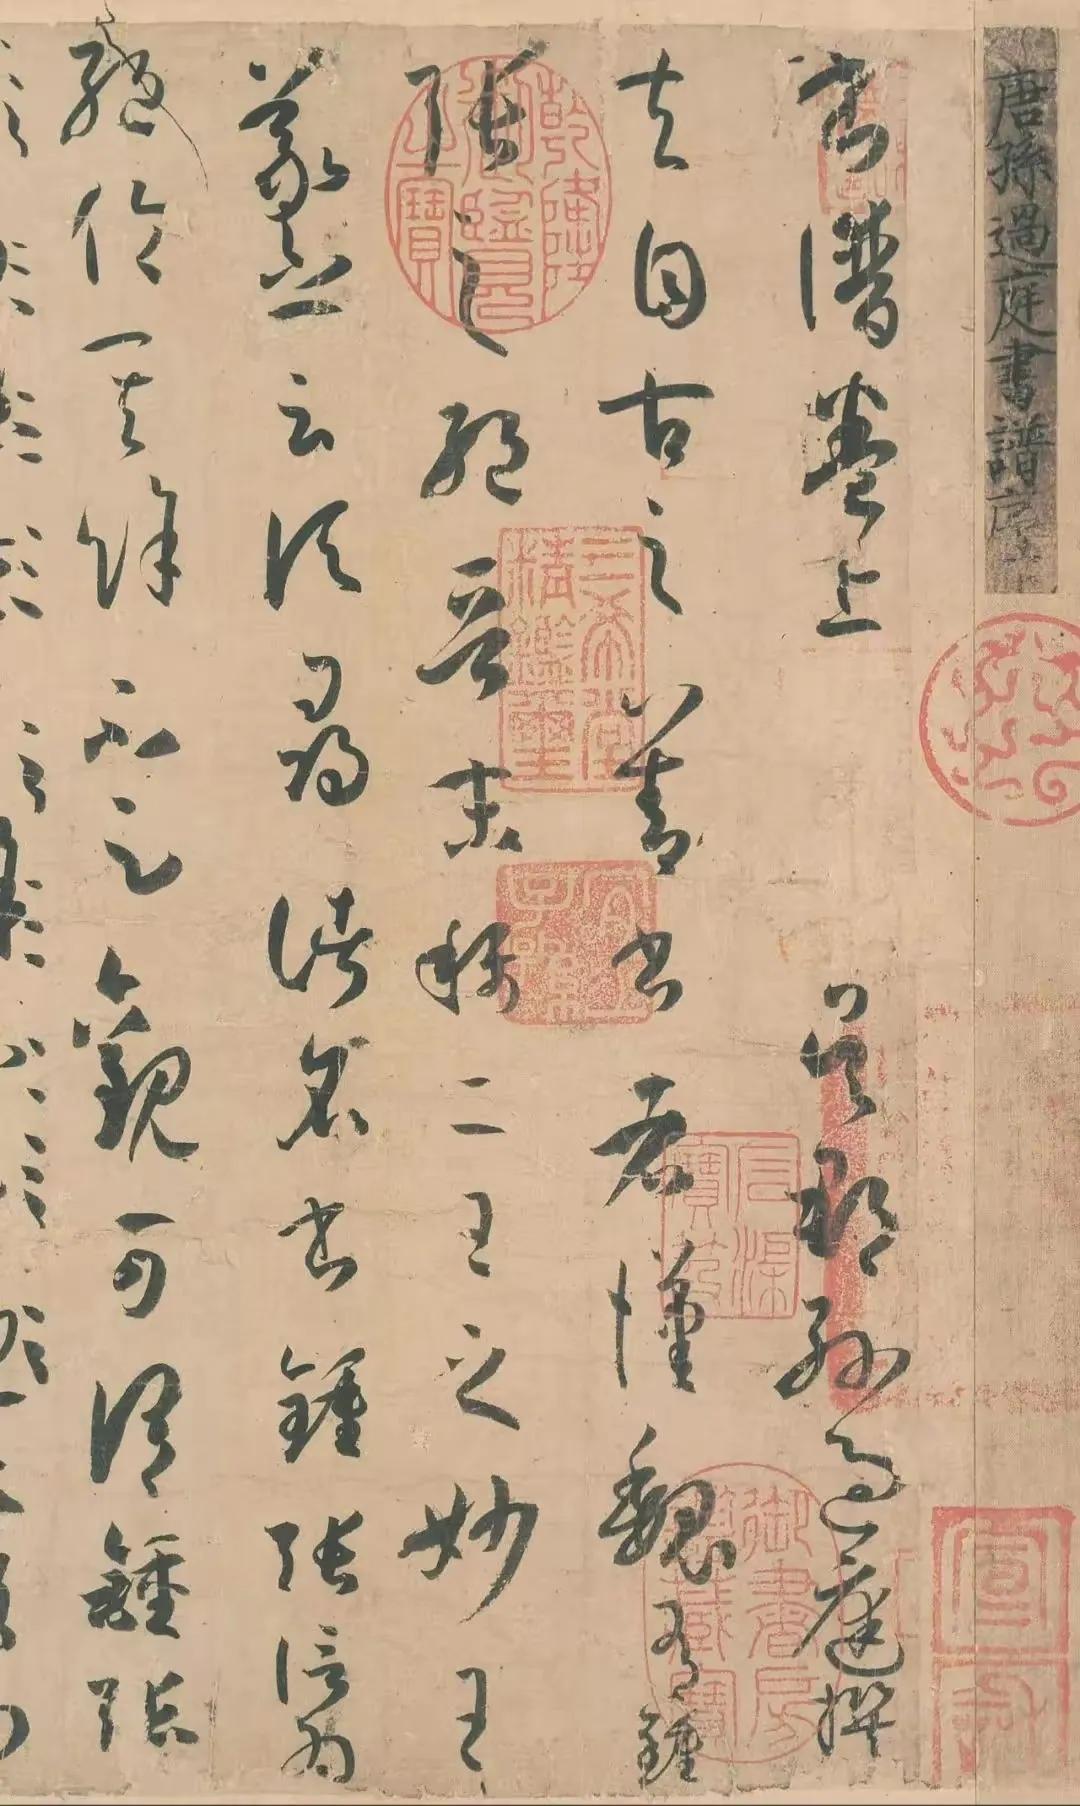 唐孫過庭書譜序
書譜卷上 吳郡孫過庭撰
夫自古之善書者漢魏有鍾
張之絕晉末稱二王之妙王
羲之云頃尋諸名書鍾張信為
絕倫其餘不足觀可謂鍾張
乾隆御覽之寶
三希堂精鑑璽
宜子孫
石渠寶笈
御書房鑑藏寶